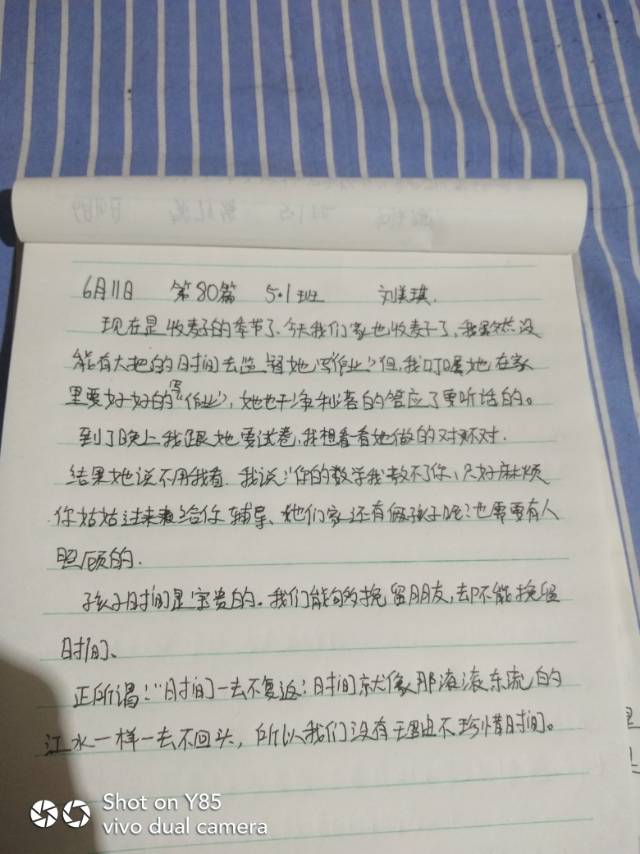 6月11日 第80篇 5.1班 刘美琪.
现在是收麦的季节了.今天我们家也收麦子了,我虽然没
能有大把的时间去监督她写作业,但,我叮嘱她在家
里要好好的写作业,她也干净利落的答应了要听话的。
到了晚上我跟她要试卷,我想看看她做的对不对.
结果她说不用我看.我说:"你的数学我教不了你,只好麻烦
你姑姑过来给你辅导、她们家还有俩孩子呢?也需要有人
照顾的.
孩子时间是宝贵的.我们能够挽留朋友,却不能挽留
时间、
正所谓!"时间一去不复返!时间就像那滚滚东流的
江水一样一去不回头,所以我们没有理由不珍惜时间。
Shot on Y85
vivo dual camera